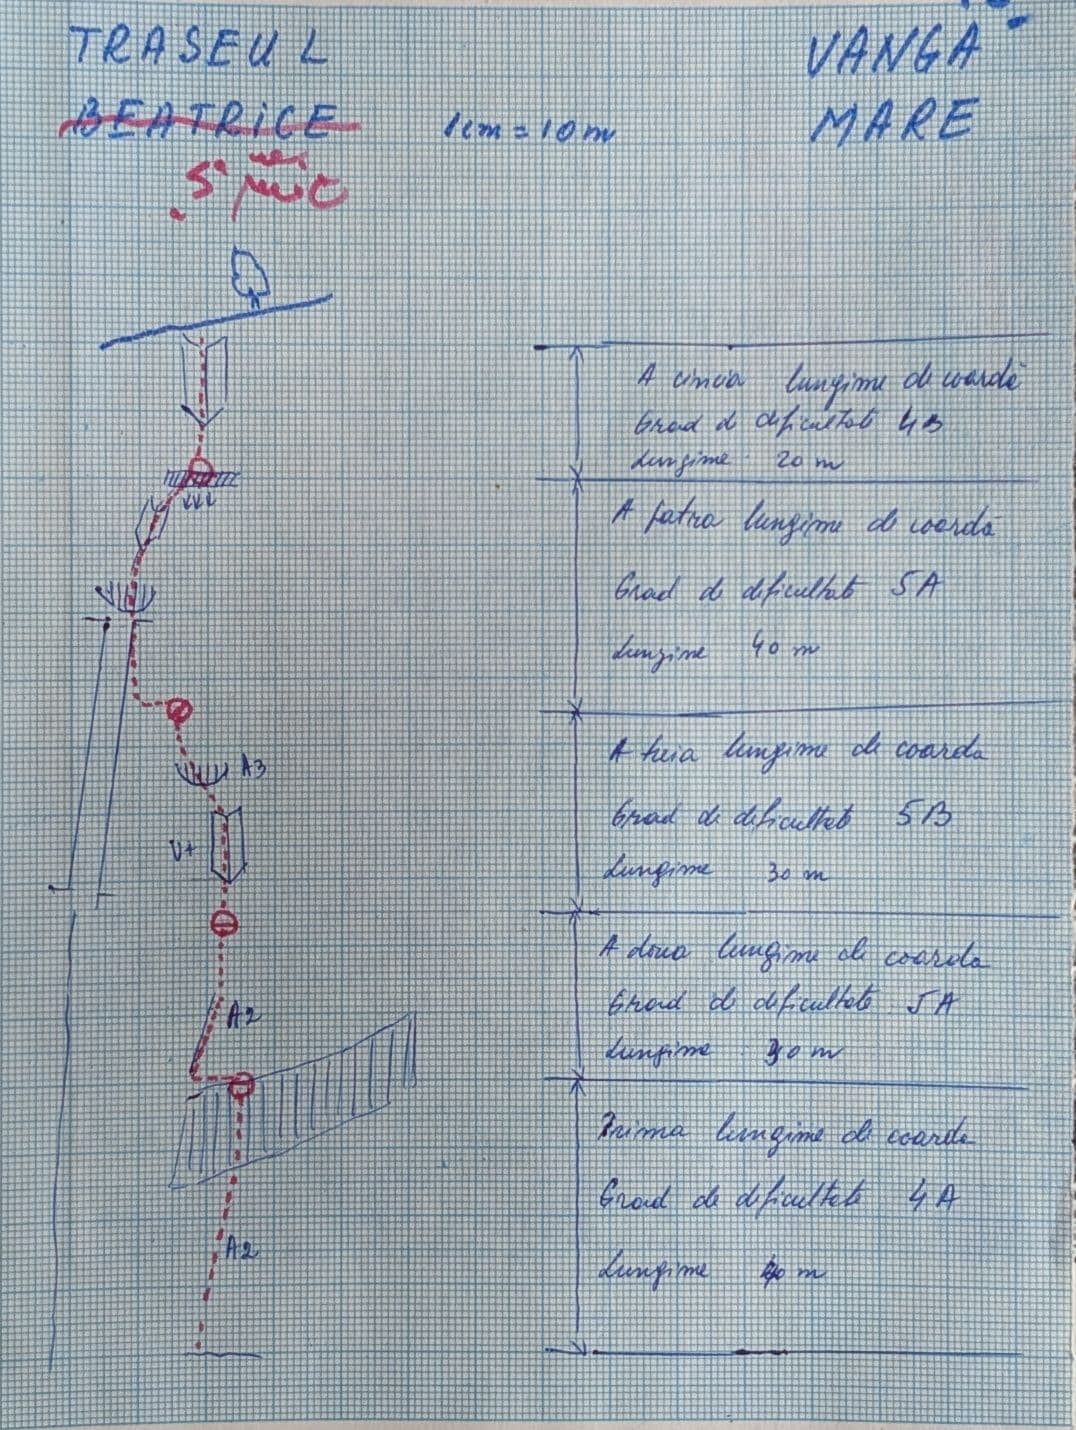 TRASEUL
BEATRICE
VANGA
MARE
1cm = 10 m
5 mic
A cincia lungime de coardă
Grad de dificultate 4B
Lungime 20 m
A patra lungime de coardă
Grad de dificultate 5A
Lungime 40 m
A3
A treia lungime de coarda
Grad de dificultate 5B
V+
Lungime 30 m
A doua lungime de coarda
Grad de dificultate 5A
A2
Lungime : 30 m
Prima lungime de coarda
Grad de dificultate 4A
A2
Lungime 40 m